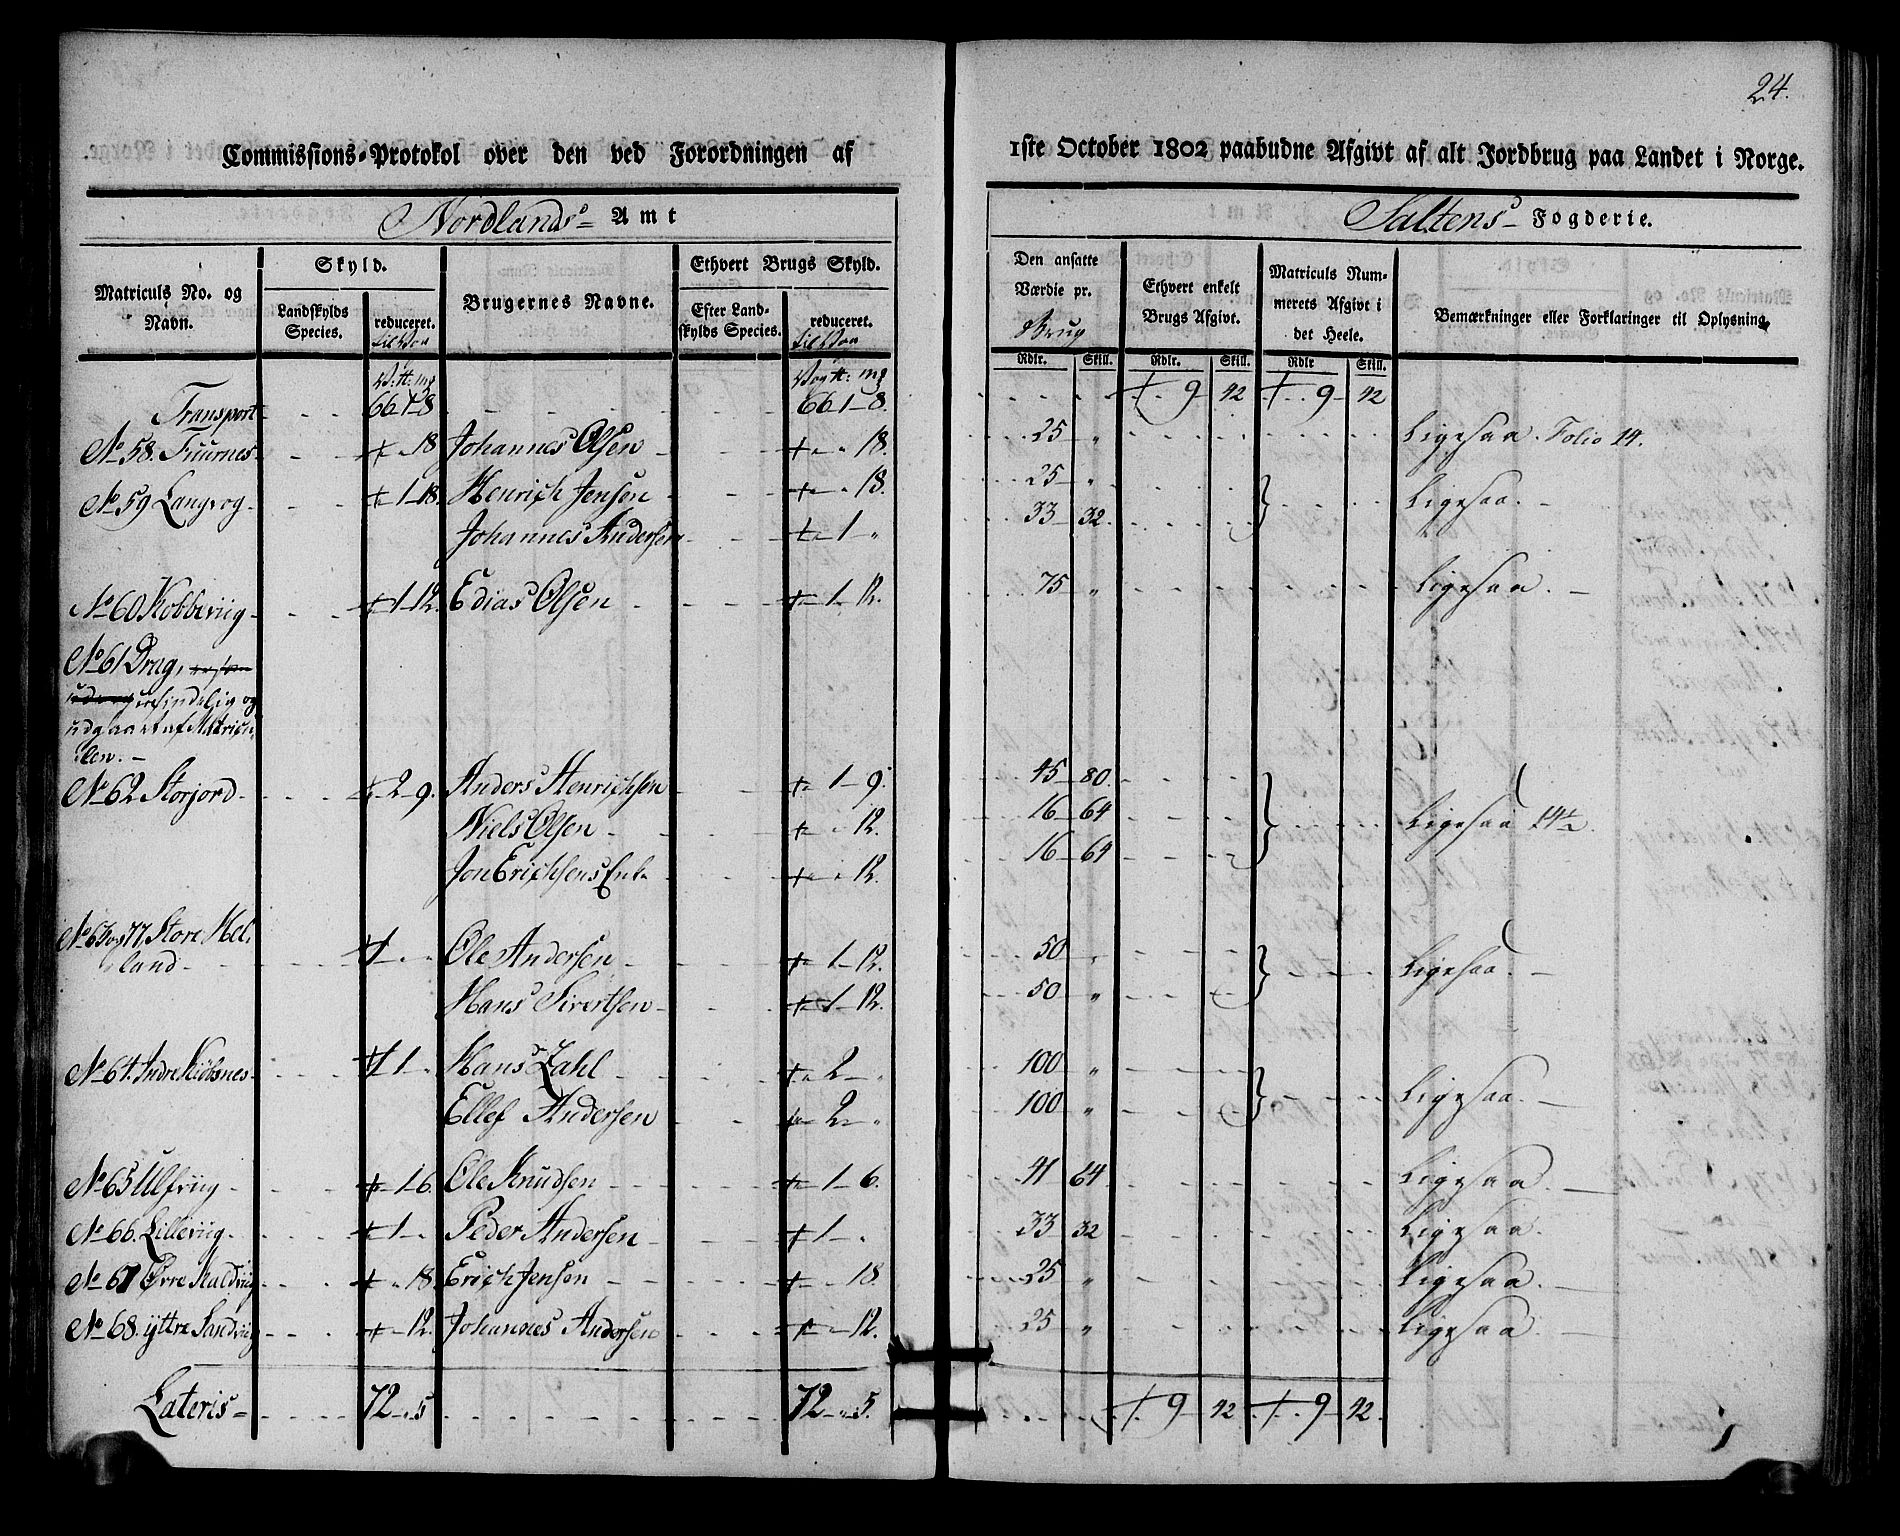 24.
Commissions-Protokol over den ved Forordningen af 1ste October 1802 paabudne Afgivt af alt Jordbrug paa Landet i Norge.
Nordlands Amt
Saltens Fogderie.
Matriculs No. og Navn.
Skyld.
Landskylds Species.
reduceret.
Brugernes Navne.
Ethvert Brugs Skyld.
Efter Landskylds Species.
reduceret.
Den ansatte Værdie pr. Brug
Ethvert enkelt Brugs Afgivt.
Matriculs Nummerets Afgivt i det Heele.
Bemærkninger eller Forklaringer til Oplysning.
Rdlr. Skill. Rdlr. Skill. Rdlr Skill.
Transport 66 1 8 66 1 8. 9 42 9 42
No 58. Fuurnes 18 Johannes Olsen 18. 25 " Ligesaa. Folio 14.
No 59 Langvog 1 18. Henrich Jensen " 18. 25 " Ligesaa.
Johannes Andersen 1 " 33 32.
No 60 Kobbeviig 1 12. Edias Olsen 1 12. 75 " Ligesaa.
No 61 Drag,
ufindelig og
udgaaet af Matricu
len.
No 62 Storjord 2 9. Anders Henrichsen 1 9. 45 80.
Niels Olsen 12. 16 64 Ligesaa 14½.
Jon Erichsens Enk. 12. 16 64
No 63 og 77. Store Hel
land 1 Ole Andersen 1 12. 50 " Ligesaa.
Hans Sivertsen 1 12. 50 "
No 64. Indre Kiöbsnes 1 1 Hans Zahl 2 " 100 "
Ellef Andersen 2 " 100 " Ligesaa.
No 65 Ulfviig 1 6. Ole Knudsen 1 6. 41 64 Ligesaa.
No 66. Lilleviig 1 Peder Andersen 1 33 32 Ligesaa.
No 67 Øvre Kaldviig 18. Erich Jensen 18. 25 " Ligesaa.
No 68. ÿttre Sandviig 12. Johannes Andersen 12. 25 " Ligesaa.
Lateris 72 " 5 72 " 5. 9 42 9 42.